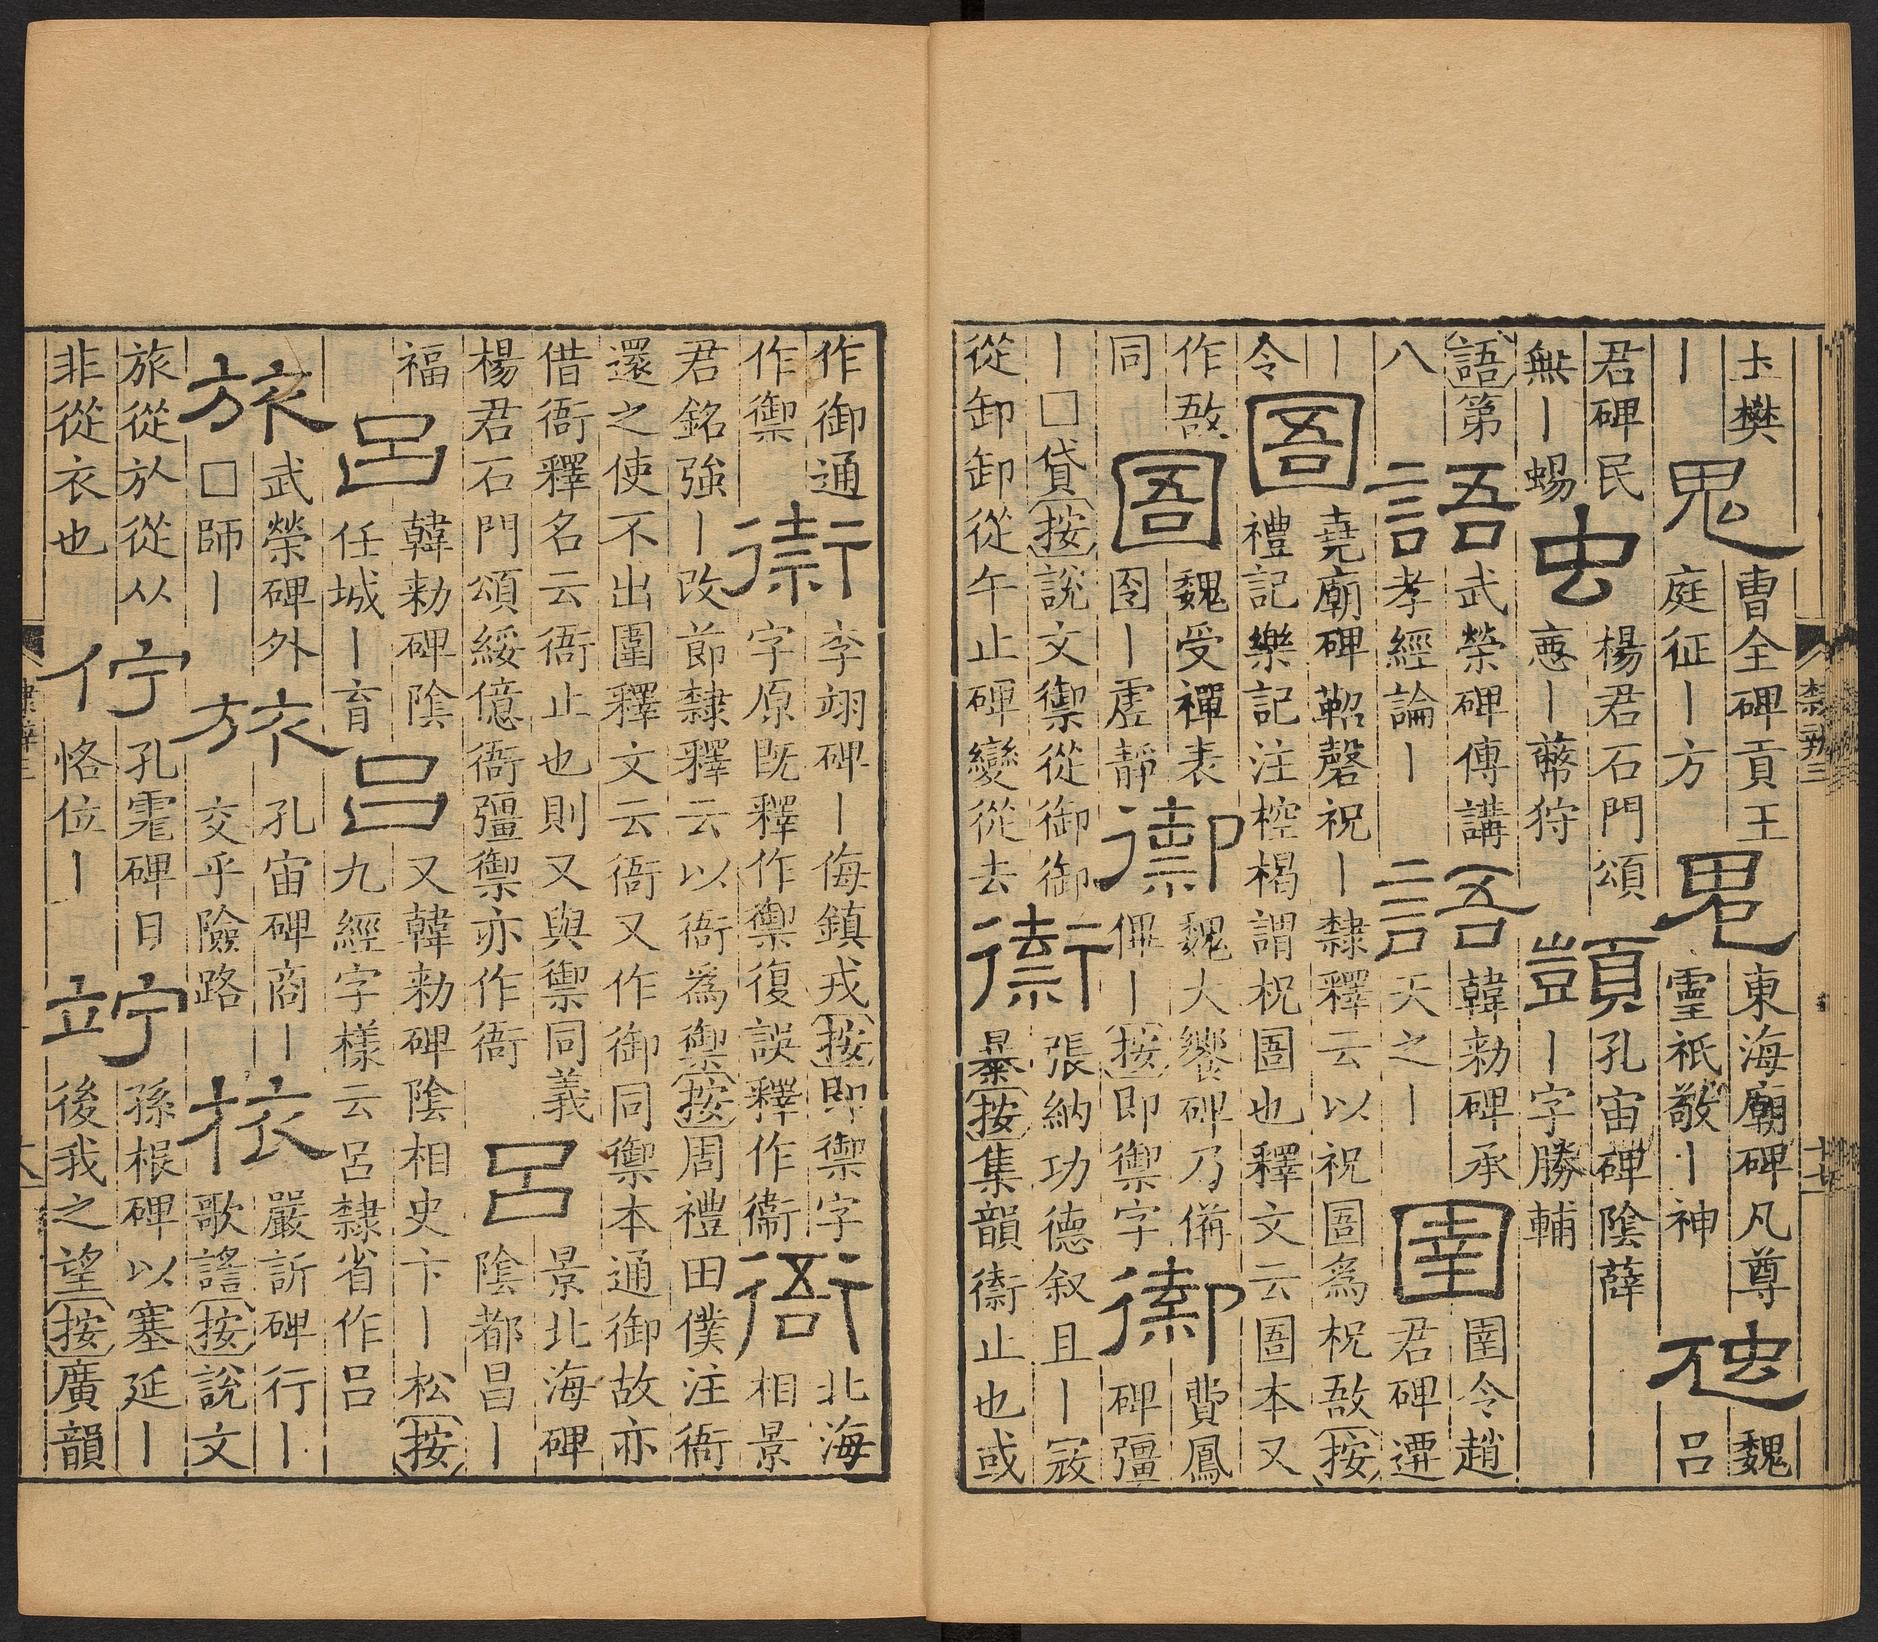 圡樊
丨
鬼
曹全碑貢王
庭征丨方
鬼
東海廟碑凡尊
靈祇敬丨神
魏
吕
君碑民
無丨蜴
虫
楊君石門頌
惡丨蔽狩
顗
孔宙碑陰薛
丨字勝輔
語第
八
語
武榮碑傳講
孝經論丨
語
韓勑碑承
天之丨
圉
圉令趙
君碑遷
丨
令
圄
堯廟碑鞀磬祝丨隸釋云以祝圄爲柷敔按
禮記樂記注椌楬謂柷圄也釋文云圄本又
作敔
同
圄
魏受禪表
囹丨虛靜
禦
魏大饗碑乃備
俾丨按即禦字
禦
費鳳
碑彊
丨□貸按說文禦從御御
從卸卸從午止碑變從去
張納功德叙且丨寇
暴按集韻衛止也或
隸辨三
十七
作御通
作禦
李翊碑丨侮鎮戎按即禦字
字原既釋作禦復誤釋作衞
衙
北海
相景
君銘強丨改節隸釋云以衙為禦按周禮田僕注衙
還之使不出圍釋文云衙又作御同禦本通御故亦
借衙釋名云衙止也則又與禦同義
楊君石門頌綏億衙彊禦亦作衙
呂
景北海碑
陰都昌丨
福
呂
韓勑碑陰
任城丨育
吕
又韓勑碑陰相史卞丨松按
九經字樣云呂隸省作吕
旅
武榮碑外
□師丨
旅
孔宙碑商丨
交乎險路
旅
嚴訢碑行丨
歌謠按說文
旅從㫃從从
非從衣也
佇
孔宠碑日
恪位丨
竚
孫根碑以塞延丨
後我之望按廣韻